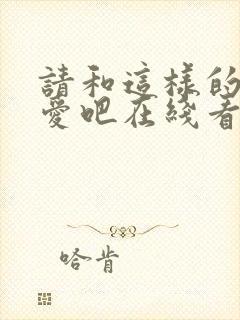 請和這樣的
愛吧在綫看
哈肯